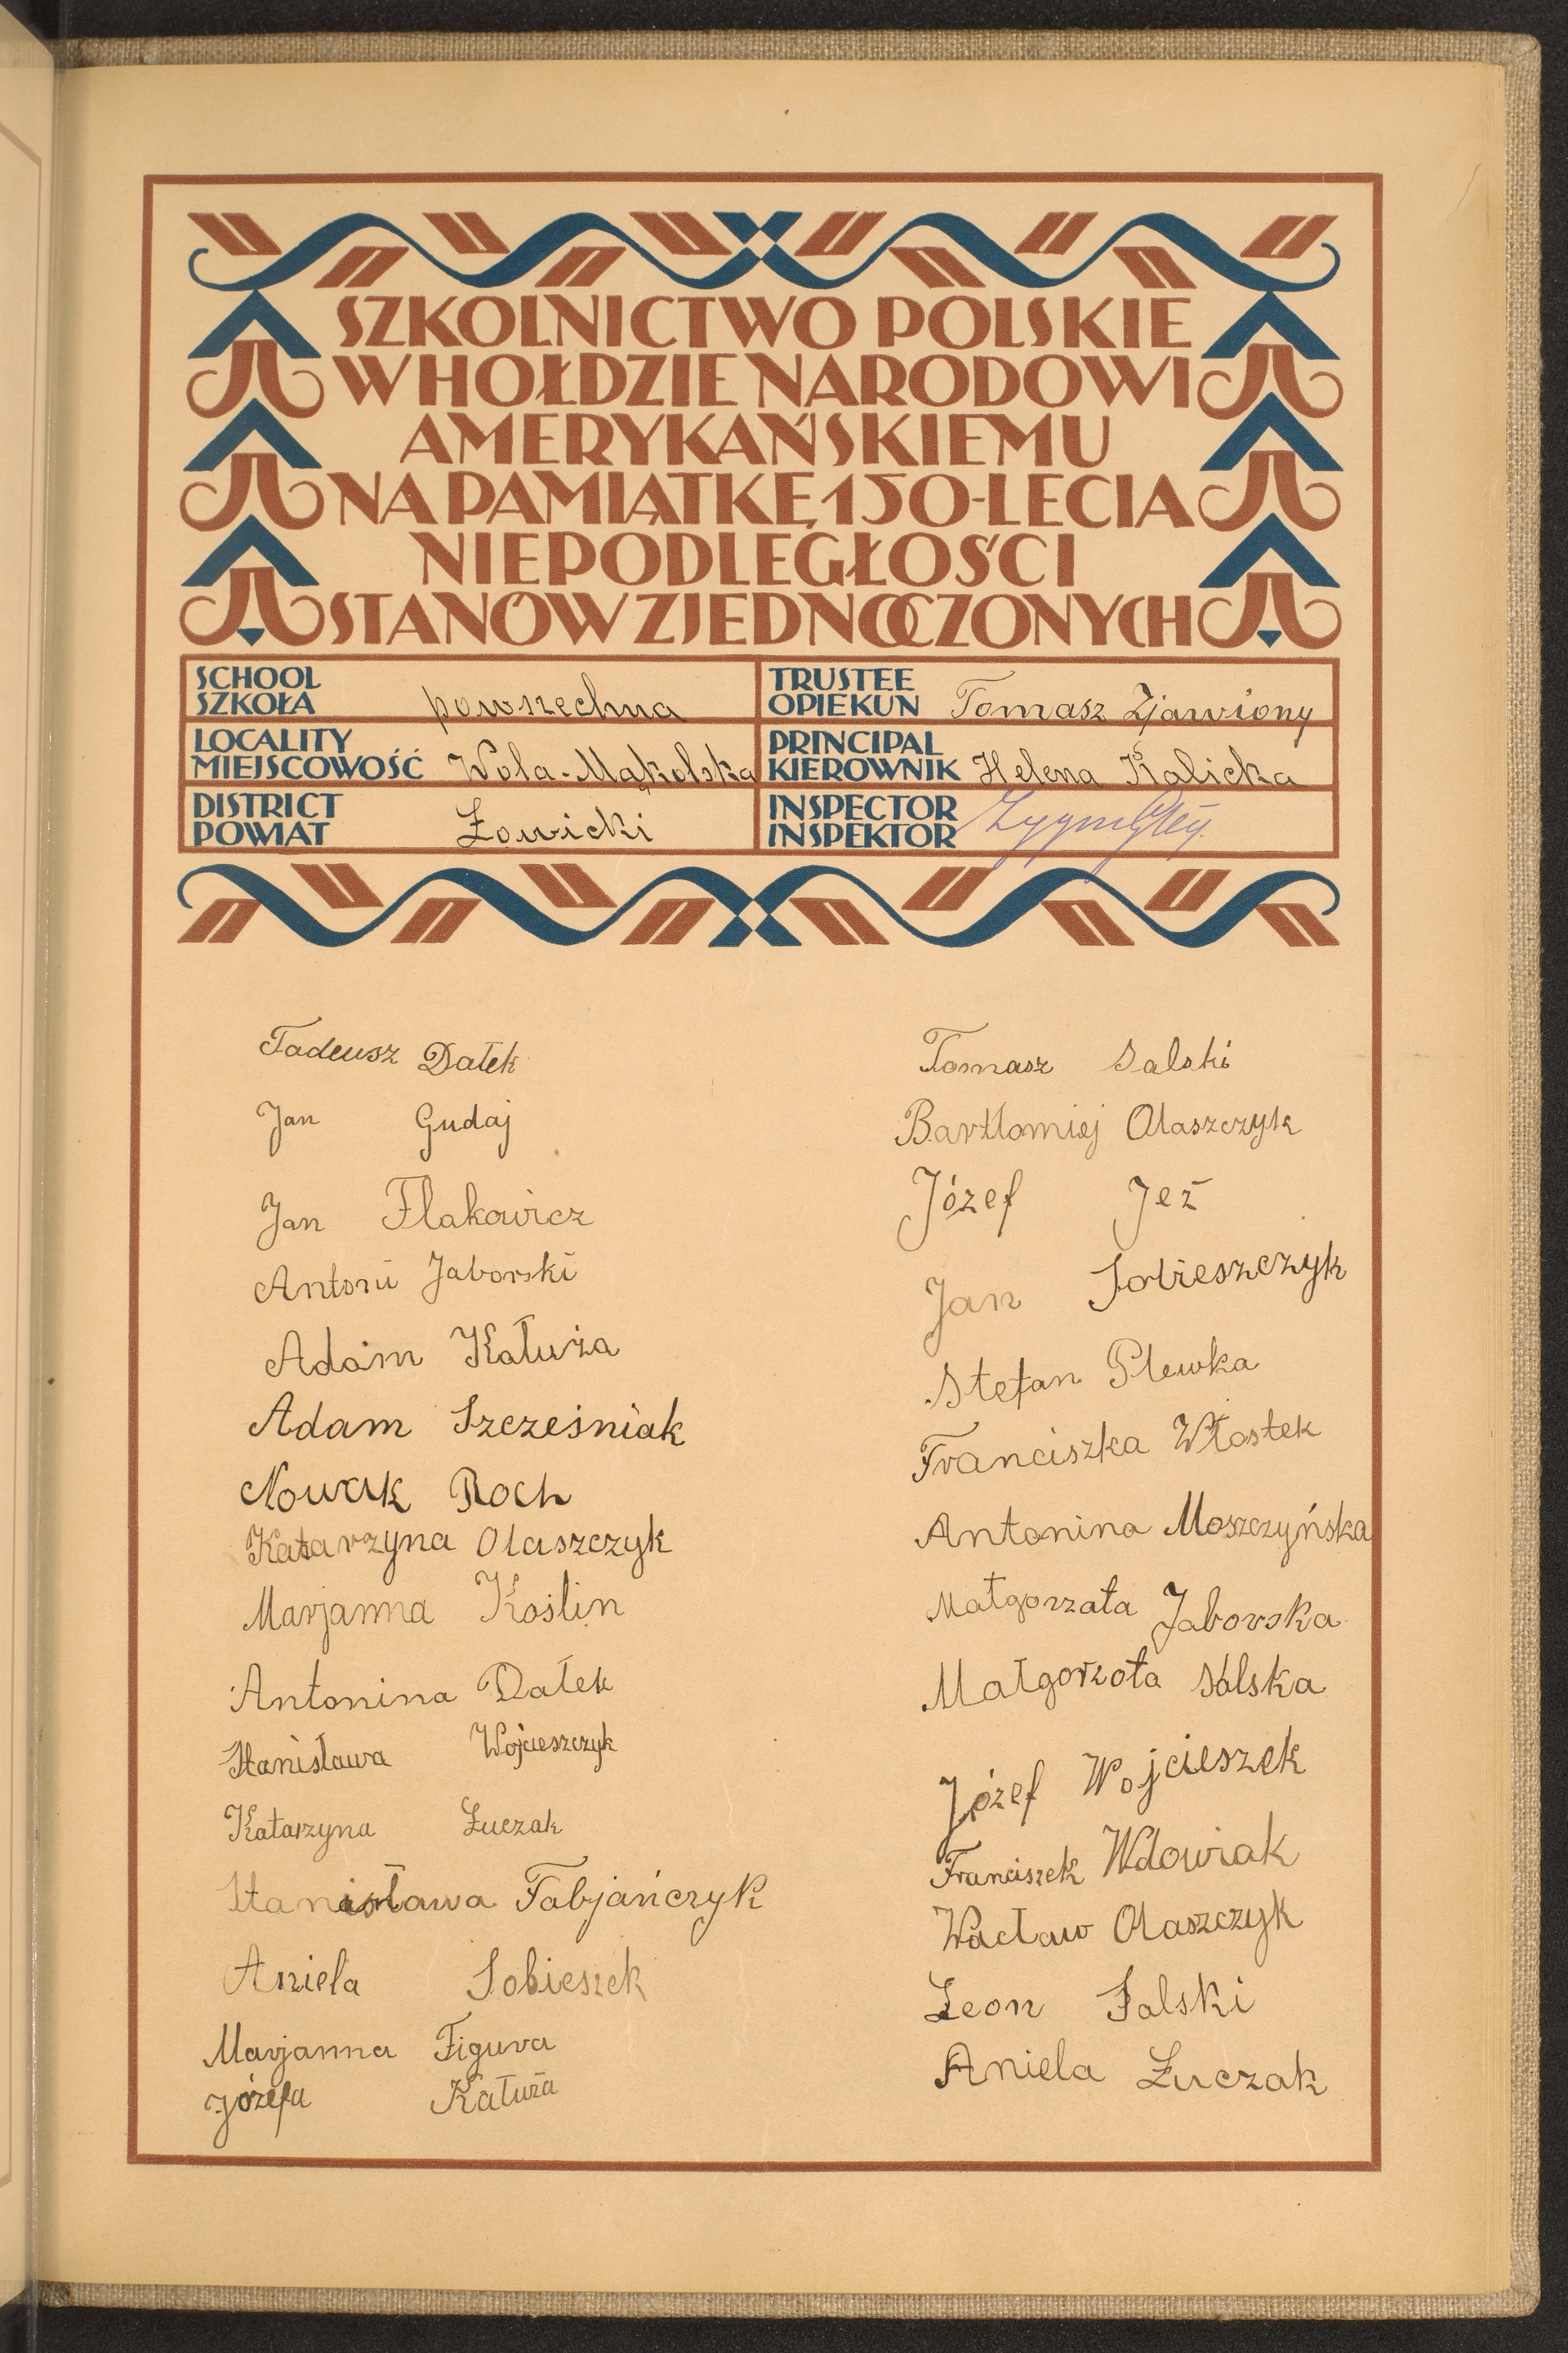 SZKOLNICTWO POLSKIE
W HOŁDZIE NARODOWI
AMERYKAŃSKIEMU
NA PAMIĄTKĘ 150-LECIA
NIEPODLEGŁOŚCI
STANÓW ZJEDNOCZONYCH
SCHOOL
SZKOŁA powszechna
TRUSTEE
OPIEKUN Tomasz Zjawiony
LOCALITY
MIEJSCOWOŚĆ Wola-Mąkolska
PRINCIPAL
KIEROWNIK Helena Kalicka
DISTRICT
POWIAT Łowicki
INSPECTOR
INSPEKTOR
Tadeusz Dałek
Jan Gudaj
Jan Flakowicz
Antoni Jaborski
Adam Kałuża
Adam Szcześniak
Nowak Roch
Katarzyna Olaszczyk
Marjanna Koślin
Antonina Dałek
Stanisława Wojcieszczyk
Katarzyna Łuczak
Stanisława Fabjańczyk
Aniela Sobieszek
Marjanna Figura
Józefa Kałuża
Tomasz Salski
Bartłomiej Olaszczyk
Józef Jeż
Jan Sobieszczyk
Stefan Plewka
Franciszka Włostek
Antonina Moszczyńska
Małgorzata Jaborska
Małgorzata Salska
Józef Wojcieszek
Franciszek Wdowiak
Wacław Olaszczyk
Leon Salski
Aniela Łuczak